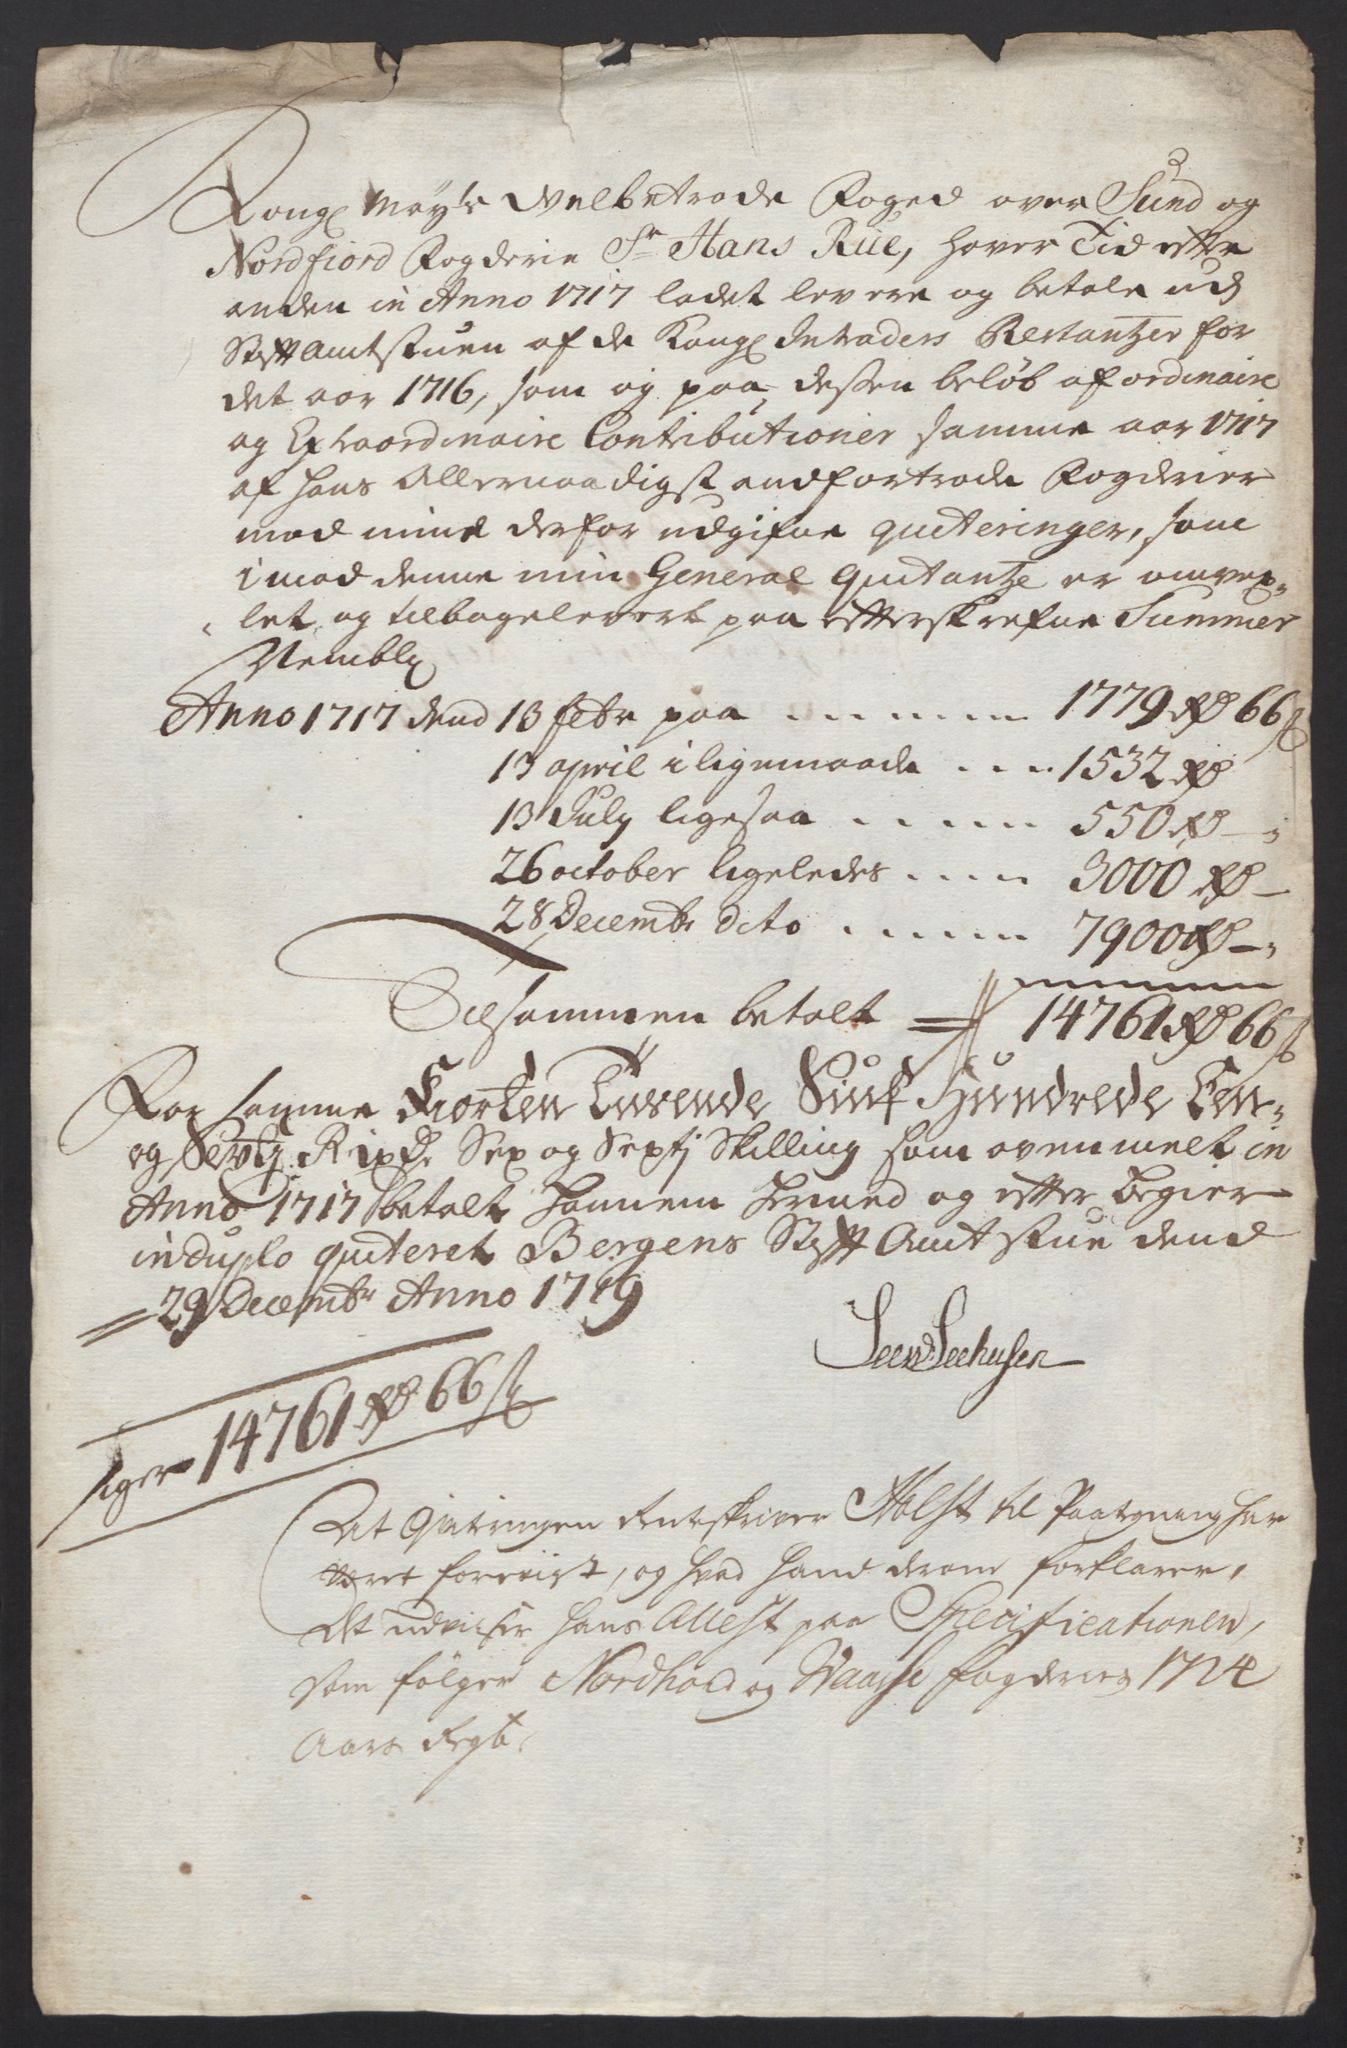 Kongl May:ts Welbetrode Foged over Sund og
Nordfiord Fogderie Sr Hans Rüe, haver Tid efter
anden in Anno 1717 ladet levere og betale ud
Stifft Amtstuen af de Kongl Intraders Restantzer for
det aar 1716, som og paa dessen beløb af ordinaire
og Extraordinaire Contributioner samme aar 1717
af hans Allernaadigst andfortrode Fogderier
mod mine derfor udgifne quiteringer, som
imod denne min General Quitantze er omvex-
let og tilbageleveret paa efterskrefne Summer
Nemblig
Anno 1717 dend 13 febr paa 1779 Rd 66 s
13 april i ligemaade 1532 Rd
13 July ligesaa 550 Rd
26 october ligeledes 3000 Rd
28 Decembr dito 7900 Rd
Tilsammen betalt 14761 Rd 66 s
For samme Fiorten Tusende Siuf Hundrede Een-
og Sextj Rixdr Sex og Sextj Skilling som ovenmelt in
Anno 1717 betalt hannem hermed og efter begier
in duplo quiteret Bergens Stifft Amtstue dend
29 Decembr Anno 1719
Seehusen
siger 14761 Rd 66 s
At Qviteringen Renteskriver Holst til Paategning har
veret foreviist, og hvad hand derom forklarer,
det udviiser hans Attest paa Specificationen,
som følger Nordhord og Waasse fogderies 1714
Aars Regb.